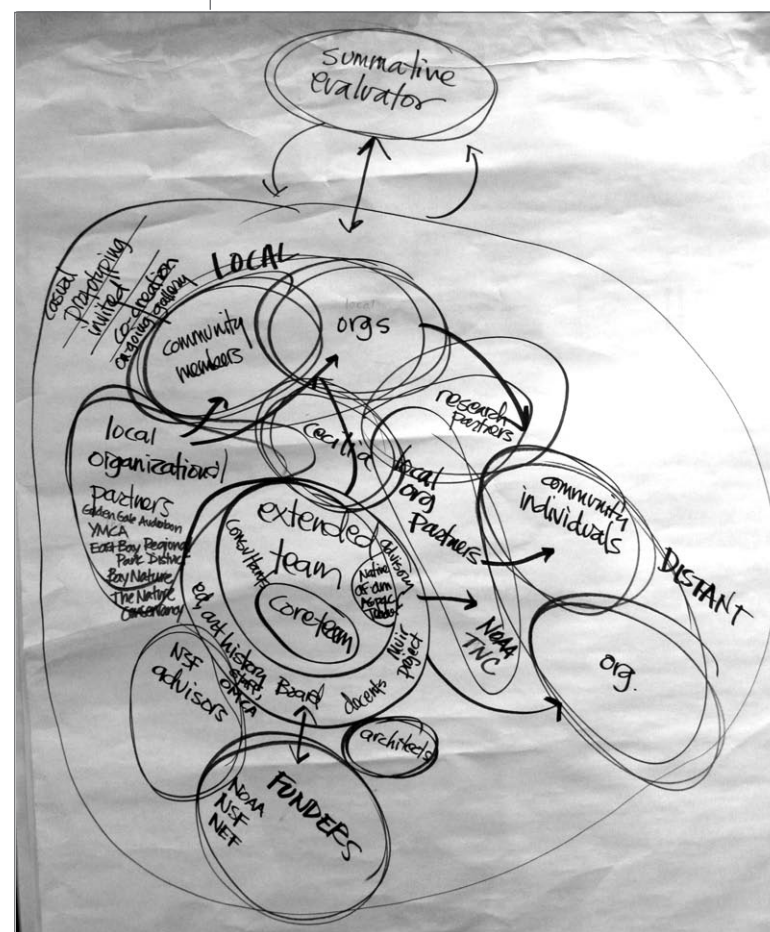 summative
evaluator
casual
prototyping
invited
co-creation
ongoing gallery
LOCAL
community
members
local
orgs
research
partners
cecilia
local
organizational
partners
Golden Gate Audubon
YMCA
East Bay Regional
Park District
Bay Nature
The Nature
Conservancy
local
org
partners
NOAA
TNC
community
individuals
DISTANT
org.
extended
team
consultant
core team
advisory
Native
Task
art history
staff
OMCA
Board
docents
Muir
project
NSF
advisors
architects
FUNDERS
NOAA
NSF
NEF